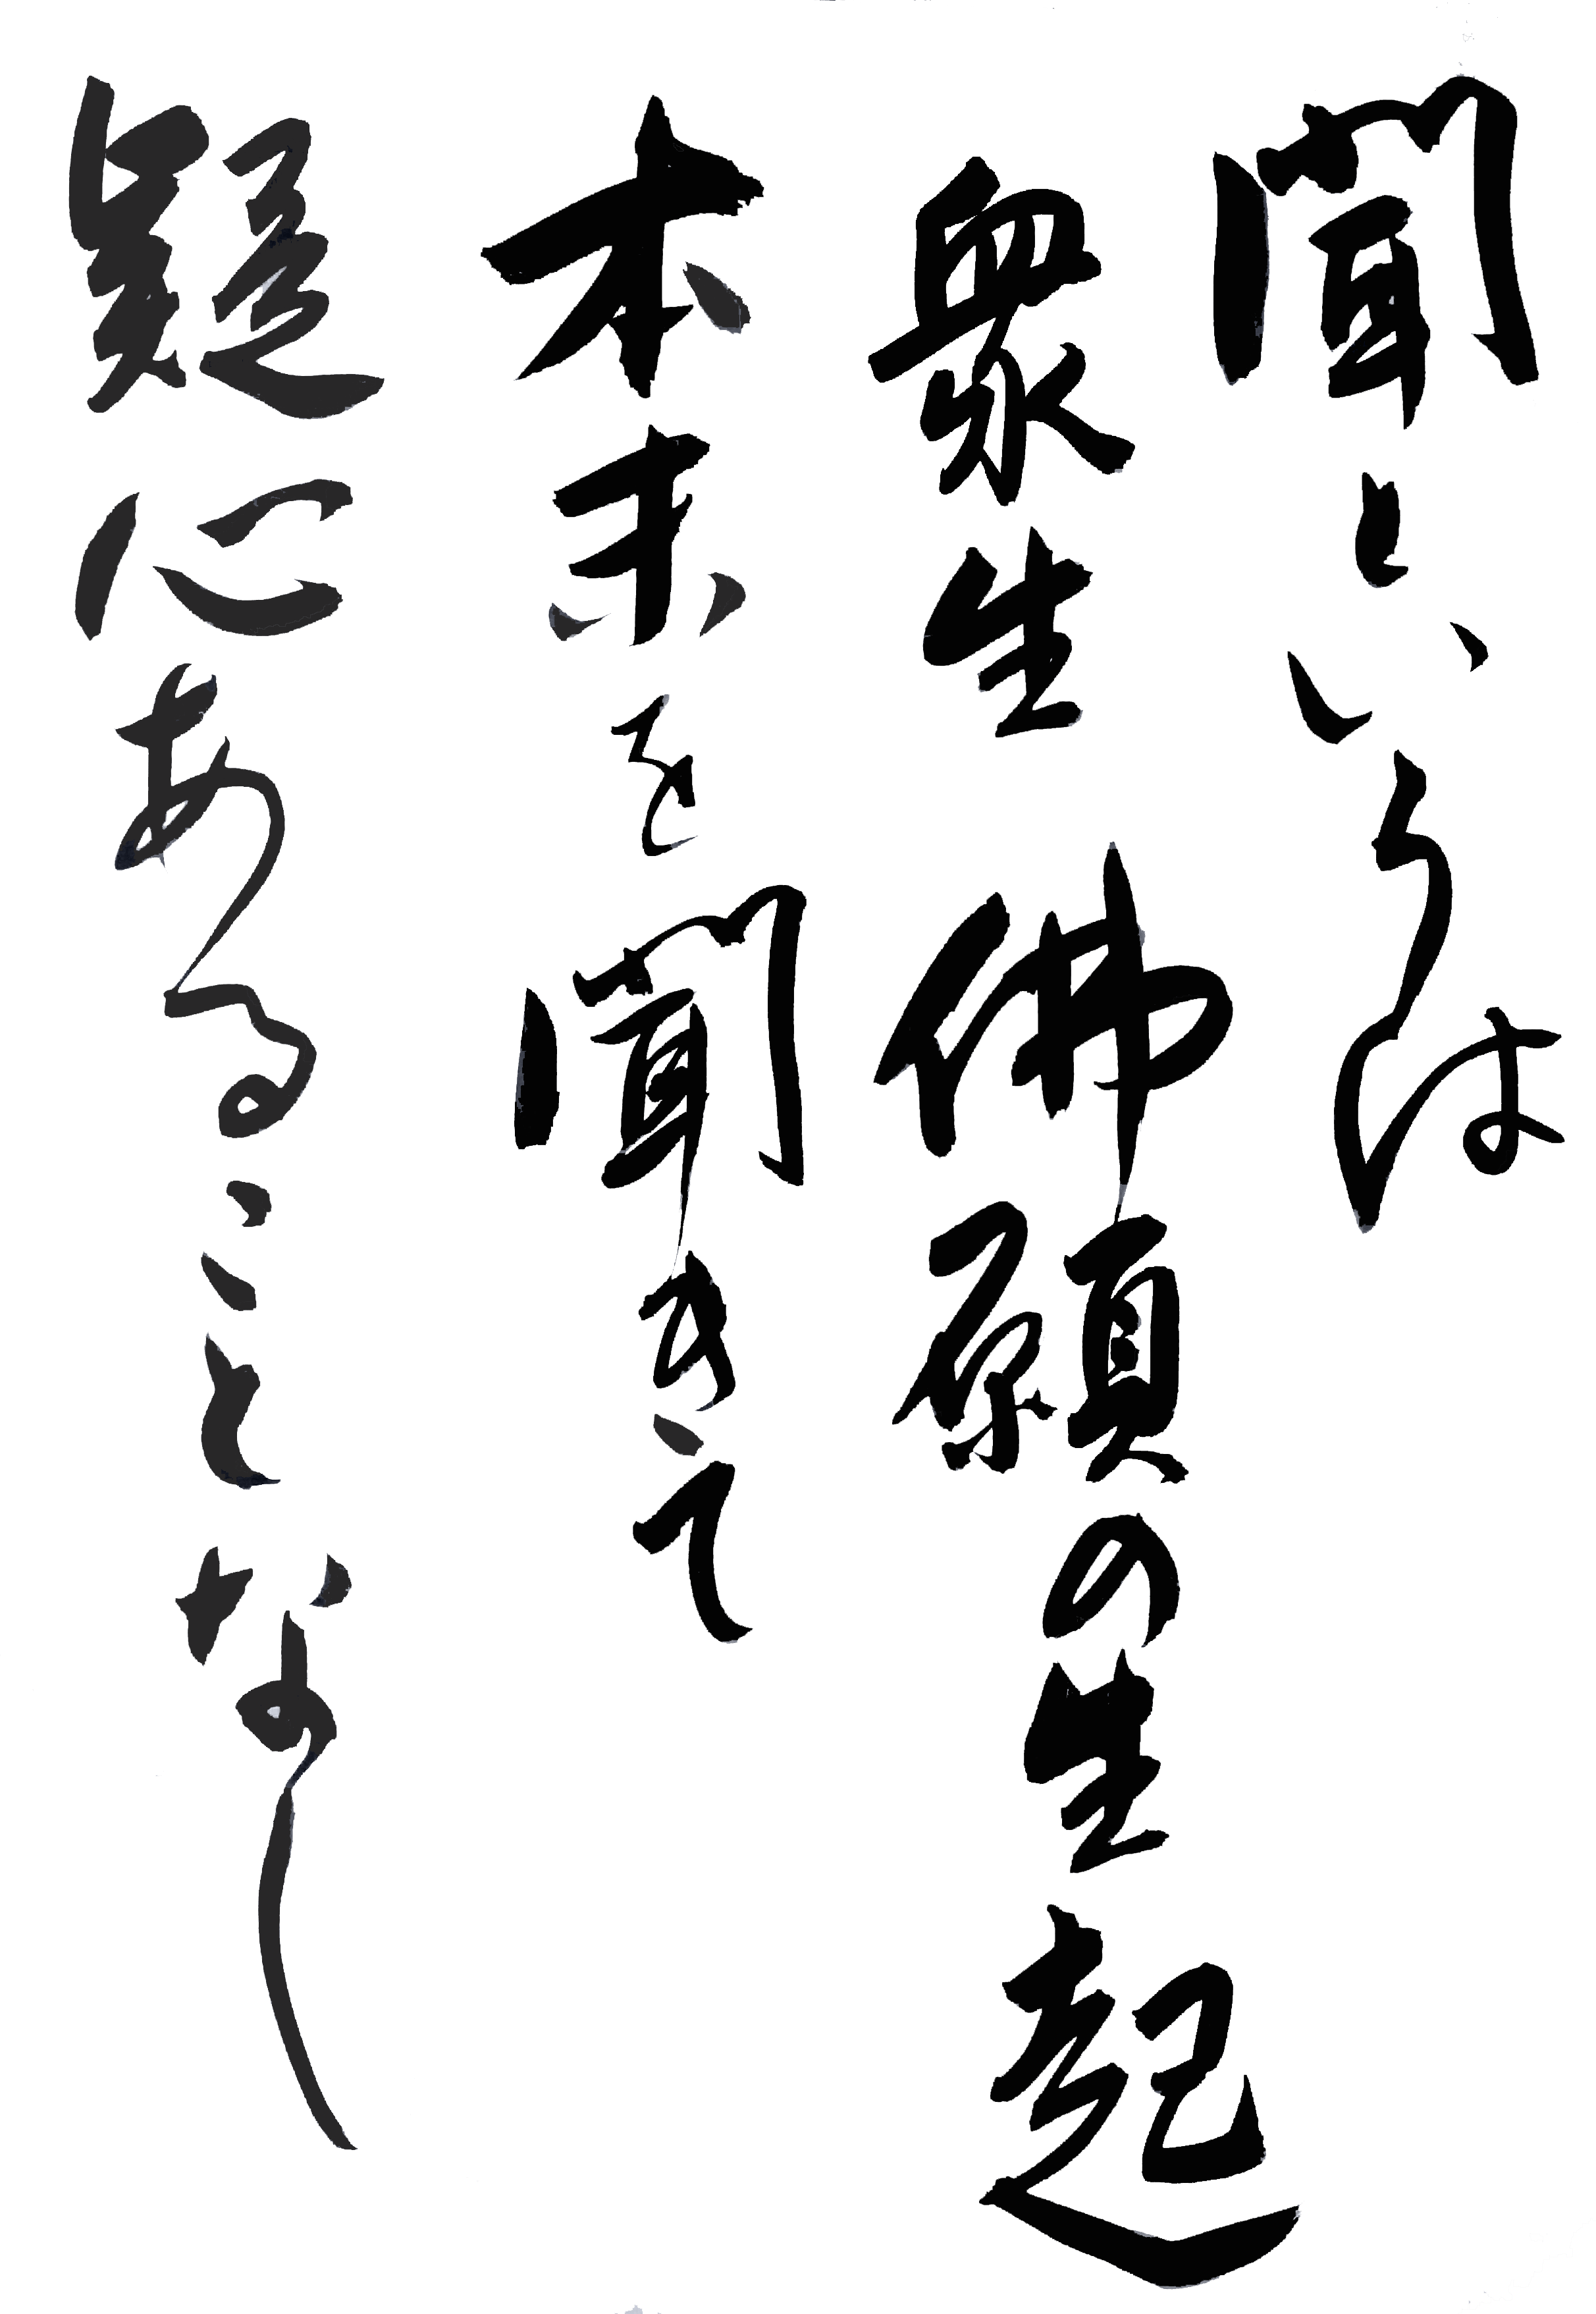 聞というは
衆生佛願の生起
本末を聞きて
疑心あることなし